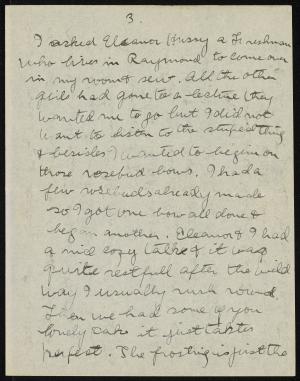 3.
I asked Eleanor Hussy a Freshman
who lives in Raymond to come over
in my room & sew. All the other
girls had gone to a lecture they
wanted me to go but I did not
want to listen to the stupid thing
& besides I wanted to begin on
those rosebud bows. I had a
few rosebuds already made
so I got one bow all done &
began another. Eleanor & I had
a nice cozy talk & it was
quite restfull after the wild
way I usually rush round.
Then we had some of your
lovely cake it just tastes
perfect. The frosting is just the